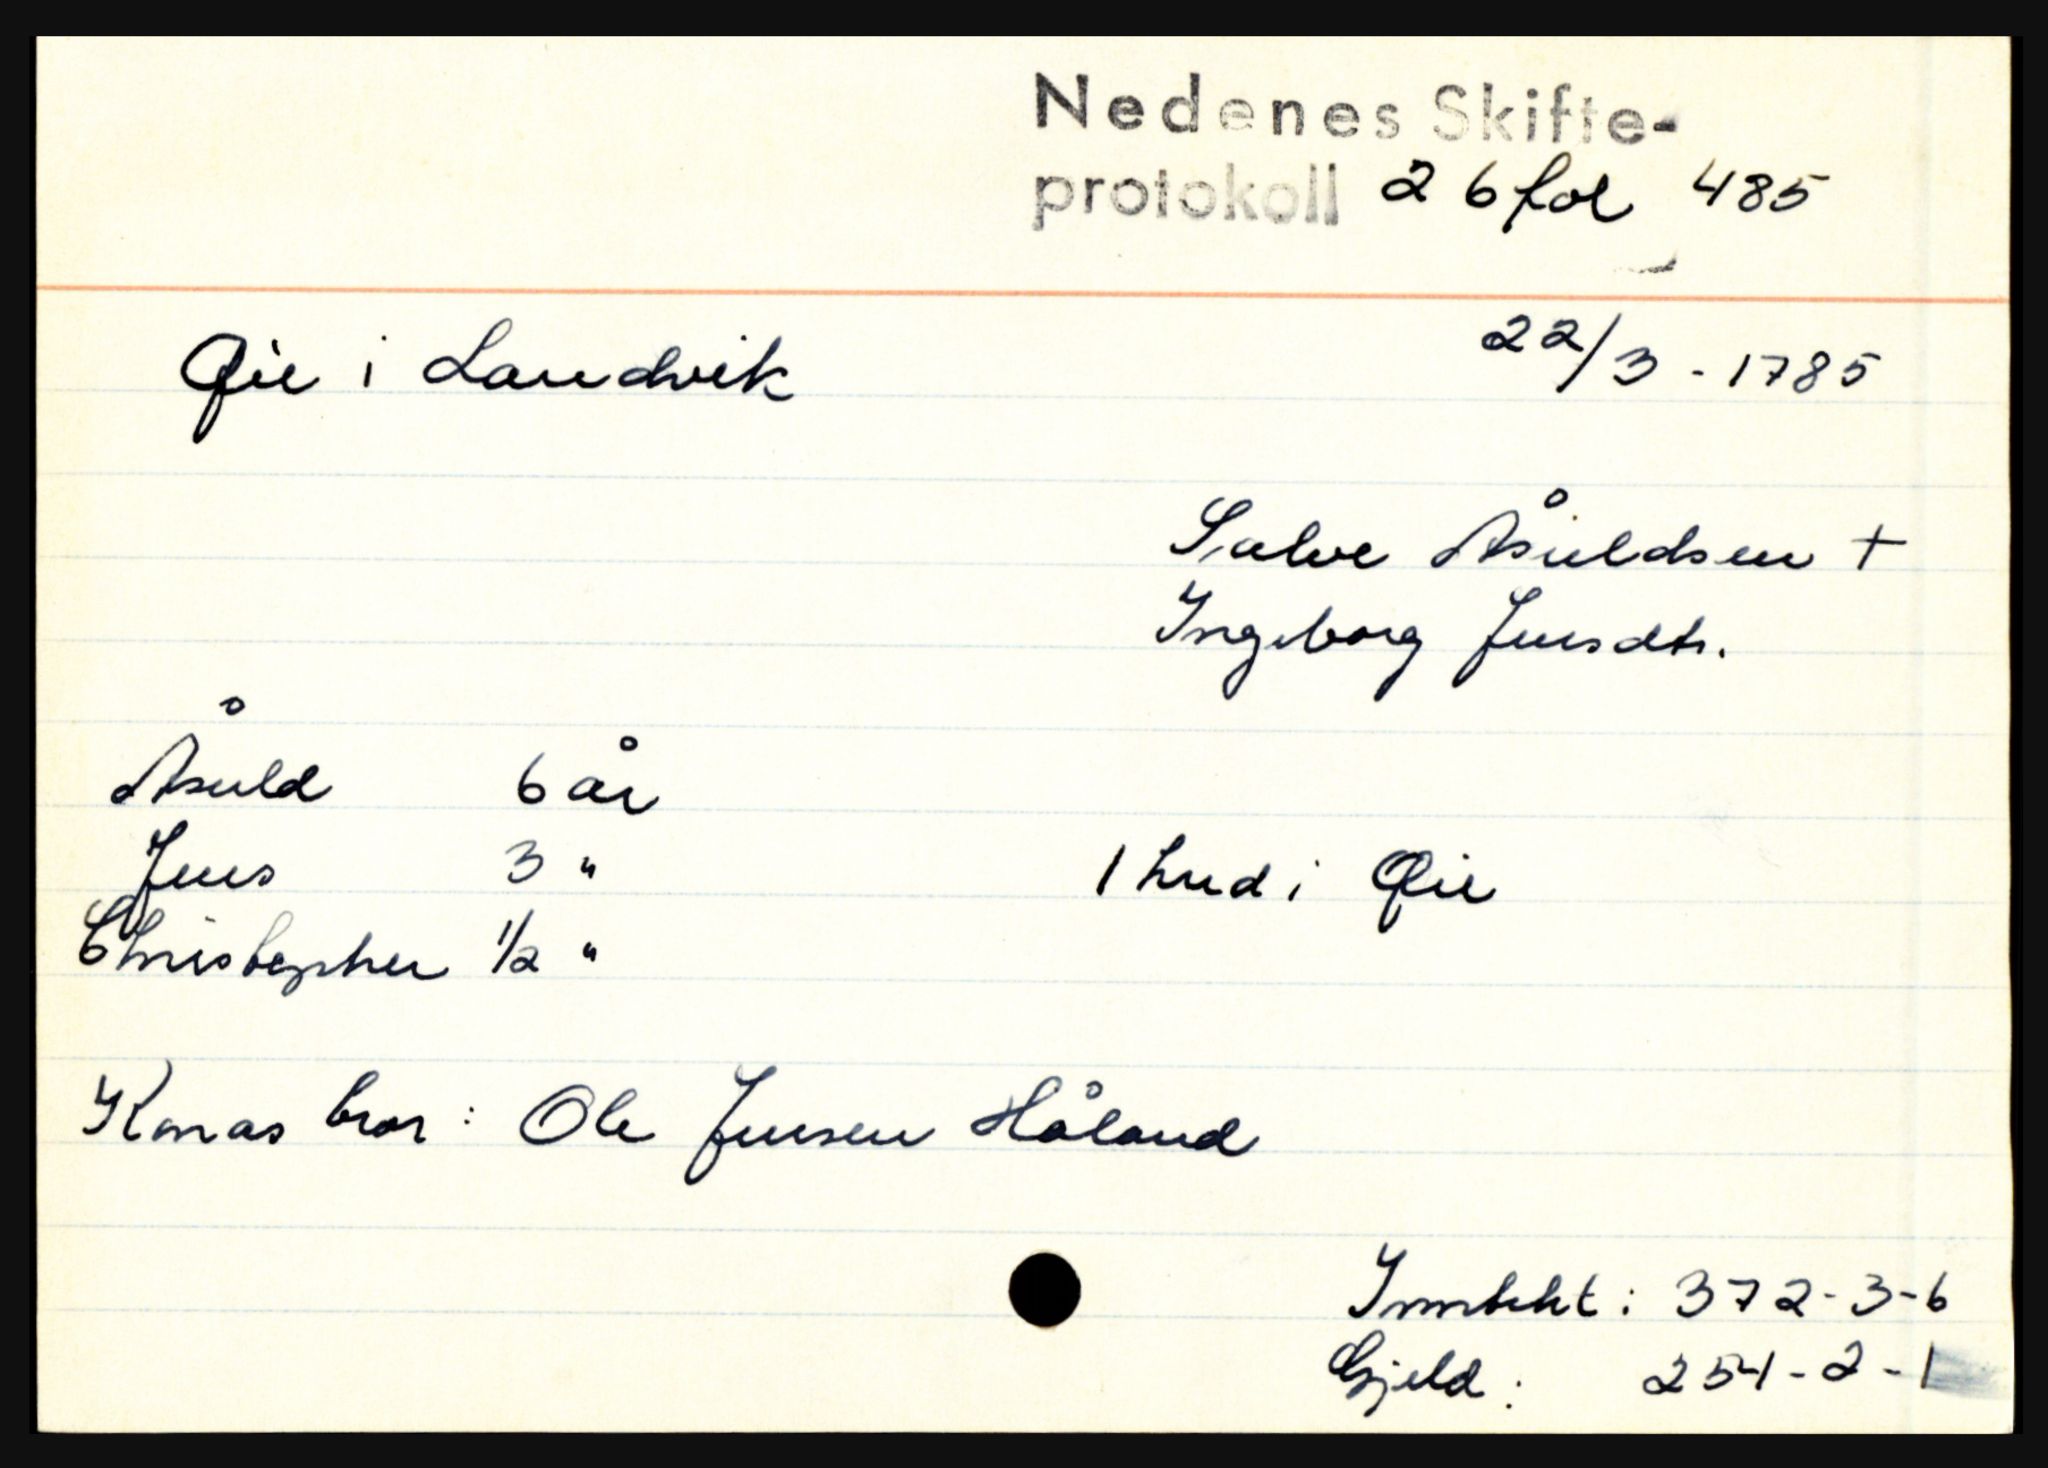 Nedenes Skifte-
protokoll 26 fol 485
Øie i Landvik 22/3 - 1785
Salve Åsuldsen +
Ingeborg Jensdtr.
Åsuld 6 år
Jens 3 "
1 hud i Øie
Christopher 1/2 "
Konas bror: Ole Jensen Håland
Inntekt: 372-3-6
Gjeld: 254-2-1